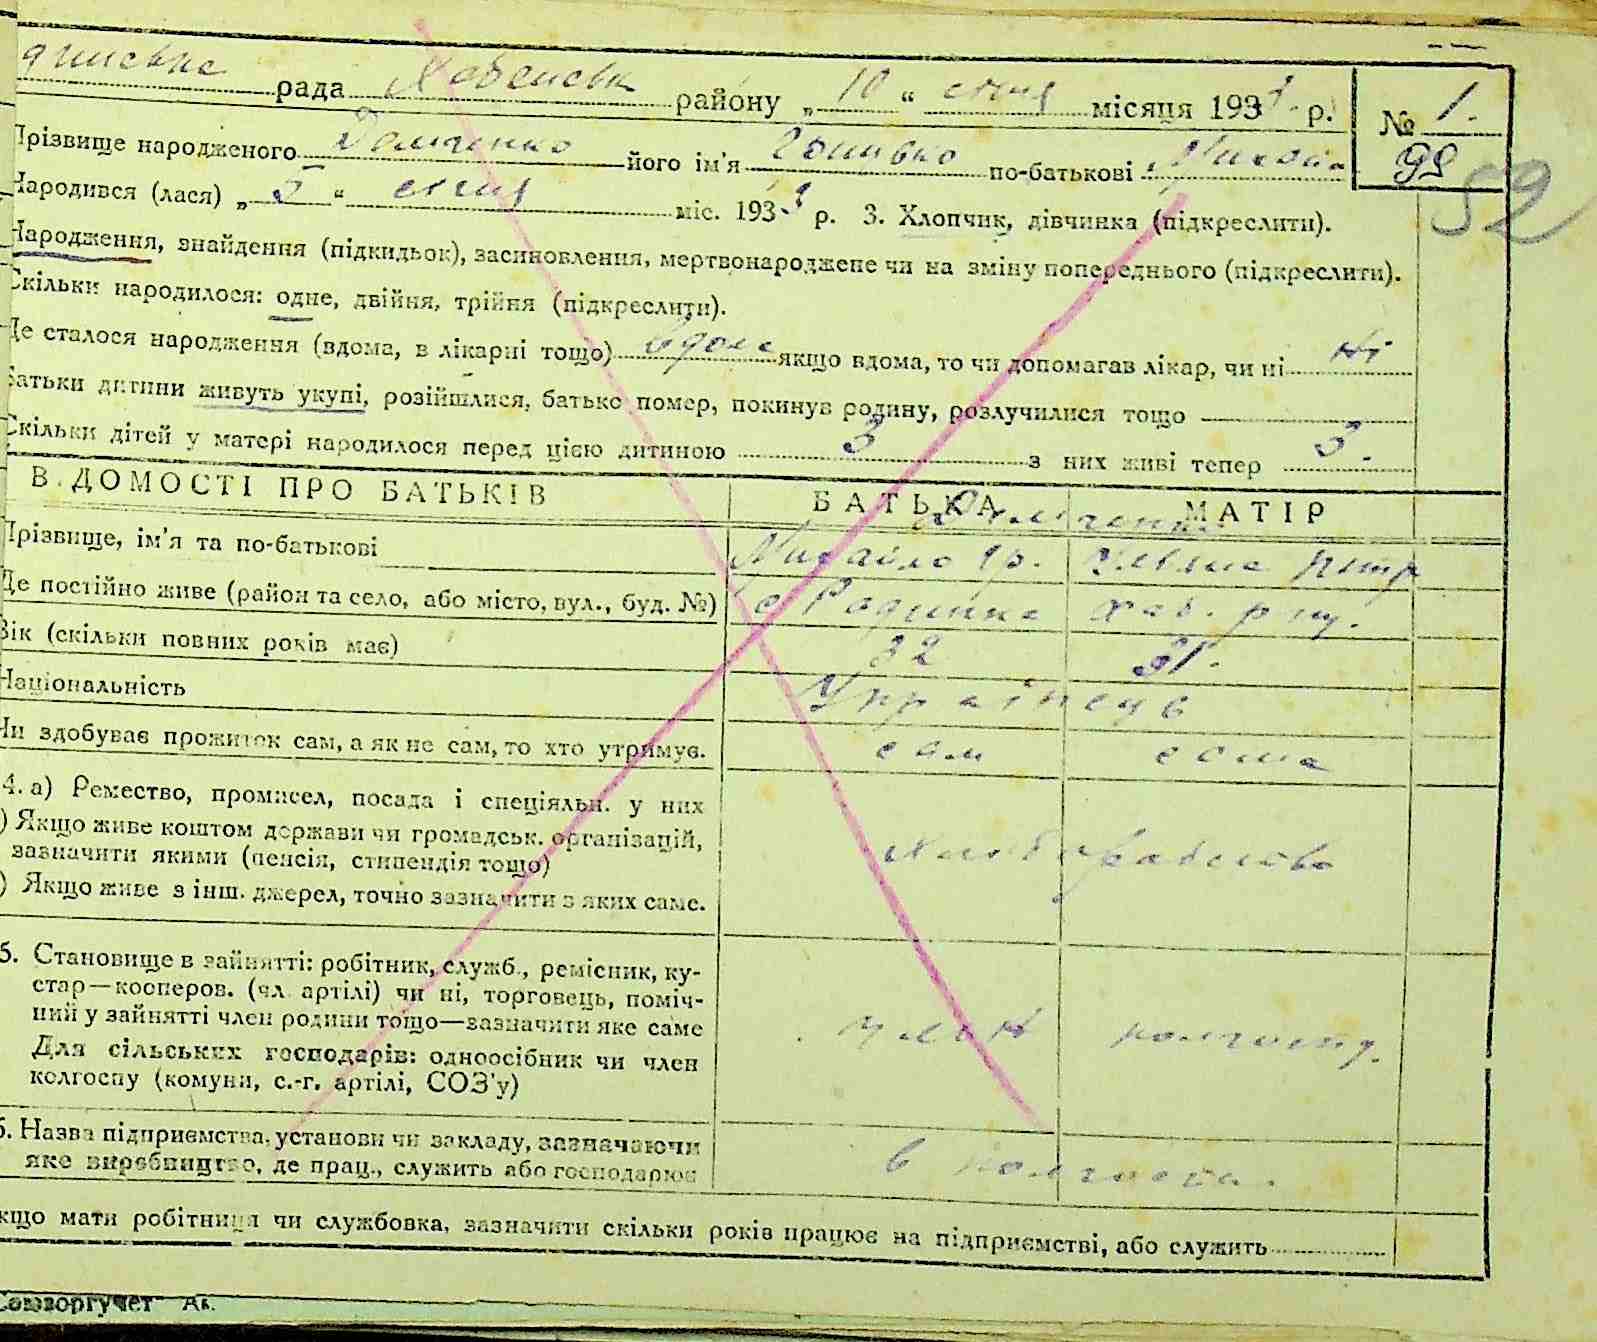 рада району „ 10 “ січня місяця 193 р. № 1.
Прізвище народженого Демченко його ім'я по-батькові 99 52
Народився (лася) „ 5 “ січня міс. 193 р. 3. Хлопчик, дівчинка (підкреслити).
Народження, знайдення (підкидьок), засиновлення, мертвонароджене чи на зміну попереднього (підкреслити).
Скільки народилося: одне, двійня, трійня (підкреслити).
Де сталося народження (вдома, в лікарні тощо) вдома якщо вдома, то чи допомагав лікар, чи ні ні
Батьки дитини живуть укупі, розійшлися, батько помер, покинув родину, розлучилися тощо
Скільки дітей у матері народилося перед цією дитиною 3 з них живі тепер 3.
ВІДОМОСТІ ПРО БАТЬКІВ БАТЬКА МАТІР
Демченко
Прізвище, ім'я та по-батькові Михайло Гр.
Де постійно живе (район та село, або місто, вул., буд. №) с Радинка Хаб. р ну.
Вік (скільки повних років має) 32 31.
Національність Українець
Чи здобуває прожиток сам, а як не сам, то хто утримує. сам сама
4. а) Ремество, промисел, посада і спеціяльн. у них
) Якщо живе коштом держави чи громадськ. організацій,
зазначити якими (пенсія, стипендія тощо) Хліборобство
) Якщо живе з інш. джерел, точно зазначити з яких саме.
5. Становище в зайнятті: робітник, служб., ремісник, ку-
стар—косперов. (чл. артілі) чи ні, торговець, поміч-
ний у зайнятті член родини тощо—зазначити яке саме
Для сільських господарів: одноосібник чи член
колгоспу (комуни, с.-г. артілі, СОЗ'у) член колгоспу.
6. Назва підприємства, установи чи закладу, зазначаючи
яке виробництво, де прац., служить або господарює в колгоспі.
кщо мати робітниця чи службовка, зазначити скільки років працює на підприємстві, або служить
Союзоргучет